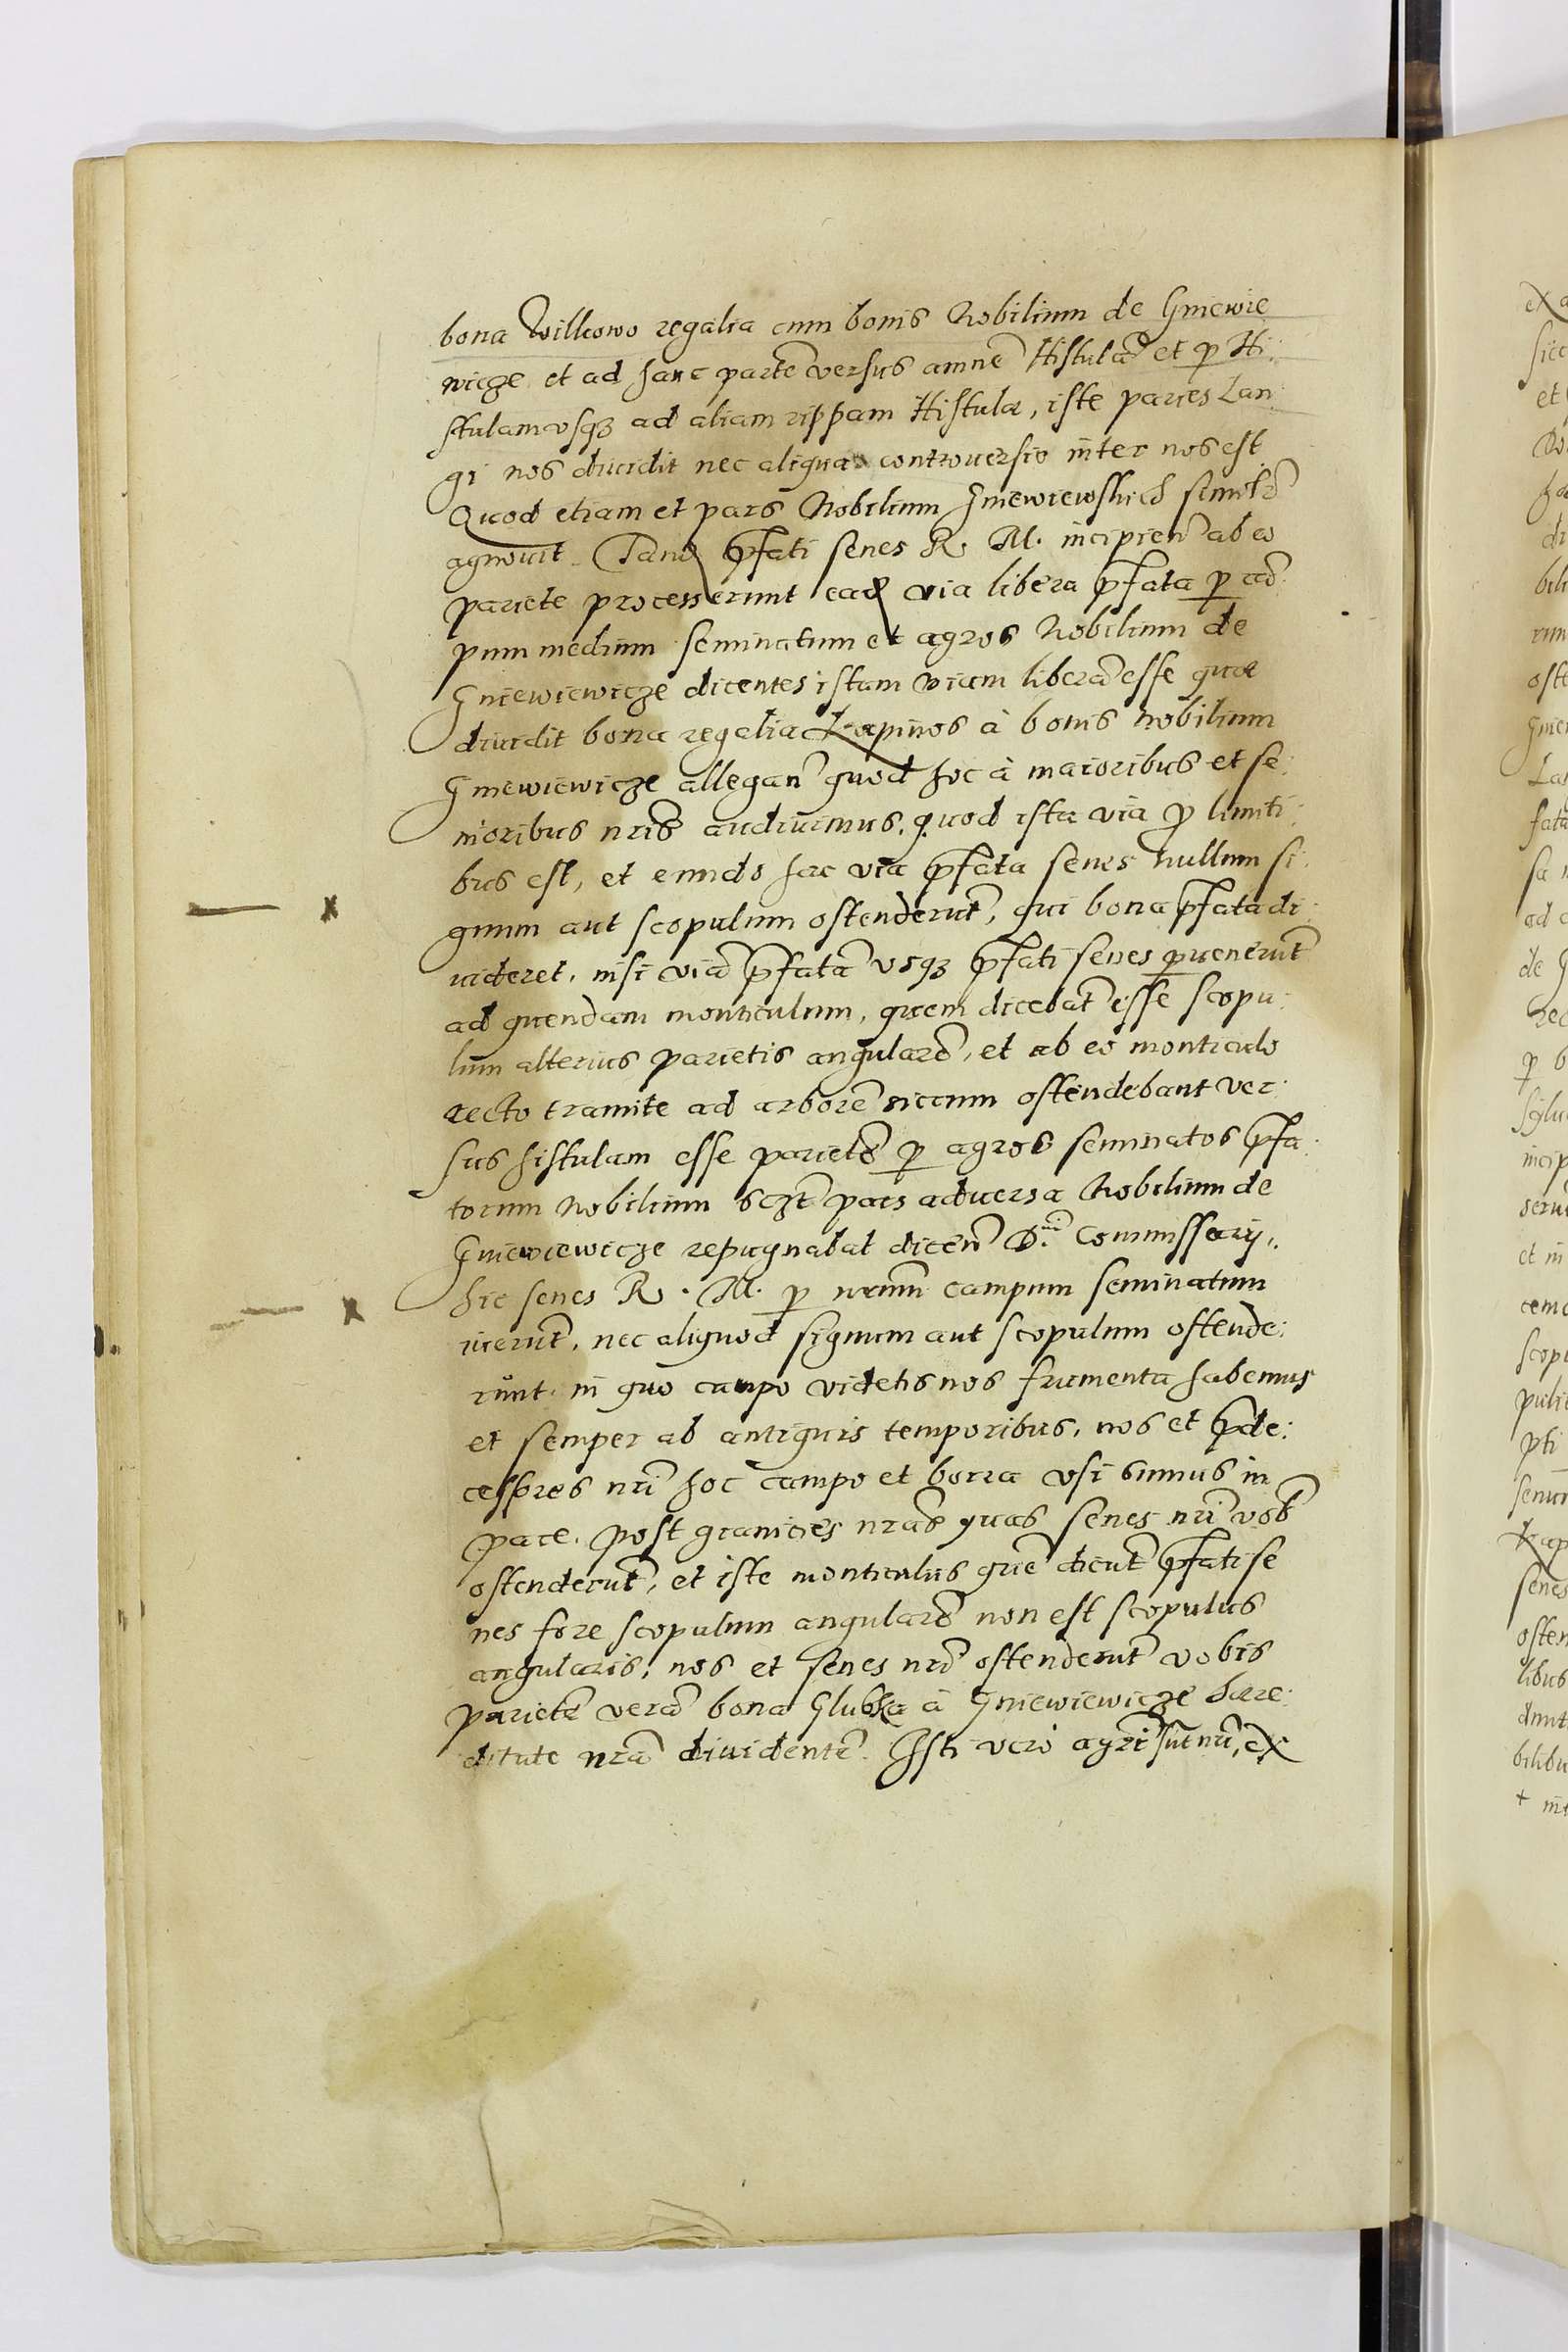 bona Wilkowo regalia cum bonis Nobilium de Gniewie
wicze et ad hanc partē versus amnē Histulā et ꝑ Hi:
stulam vsqꝫ ad aliam rippam Histulæ, iste paries Lan
gi nos diuidit nec aliqua controuersio inter nos est
Quod etiam et pars Nobilium Gniewiewskich similr̄
agnouit. Tandē p̄fati senes R. M. incipien̄ ab eo
pariete processerunt eadē via libera p̄fata ꝑ cā
pum medium seminatum et agros Nobilium de
Gniewiewicze dicentes istam viam liberā esse quæ
diuidit bona regalia Łapinos à bonis Nobilium
Gniewiewicze allegan̄ quod hoc à maioribus et se:
nioribus nr̄is audiuimus, quod ista via ꝓ limiti:
bus est, et eundo hac via p̄fata senes nullum si:
gnum aut scopulum ostenderūt, qui bona p̄fata di:
uideret, nisi viā p̄fatā vsqꝫ p̄fati senes ꝑuenerūt
ad quendam monticulum, quem dicebāt esse scopu:
lum alterius parietis angularē, et ab eo monticulo
recto tramite ad arborē siccum ostendebant ver:
sus histulam esse parietē ꝑ agros seminatos p̄fa:
torum Nobilium sczt̄ pars aduersa Nobilium de
Gniewiewicze repugnabat dicen̄ D.ni Commissarij,
hic senes R. M. ꝑ nrūm campum seminatum
iuerūt, nec aliquod signum aut scopulum ostende:
runt in quo campo videtis nos frumenta habemus
et semper ab antiquis temporibus, nos et p̄de:
cessores nr̄i hoc campo et borra vsi sumus in
pace. Post granicies nr̄as quas senes nr̄i vob̄
ostenderūt, et iste monticulus quē dicūt p̄fati se
nes fore scopulum angularē non est scopulus
angularis, nos et senes nr̄i ostenderūt vobis
parietē verā bona Glubka à Gniewiewicze hære:
ditate nr̄a diuidentē. Isti verò agri sūt nr̄i, ex